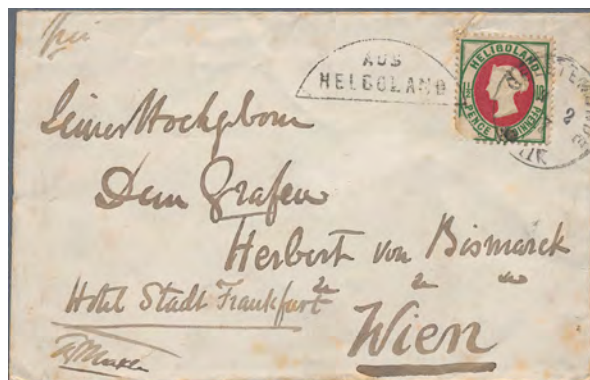 frei
AUS
HELGOLAND
HELIGOLAND
PENCE
PFENNIG
Seiner Hochgeborn
Dem Grafen
Herbert von Bismarck
Hotel Stadt Frankfurt
Wien